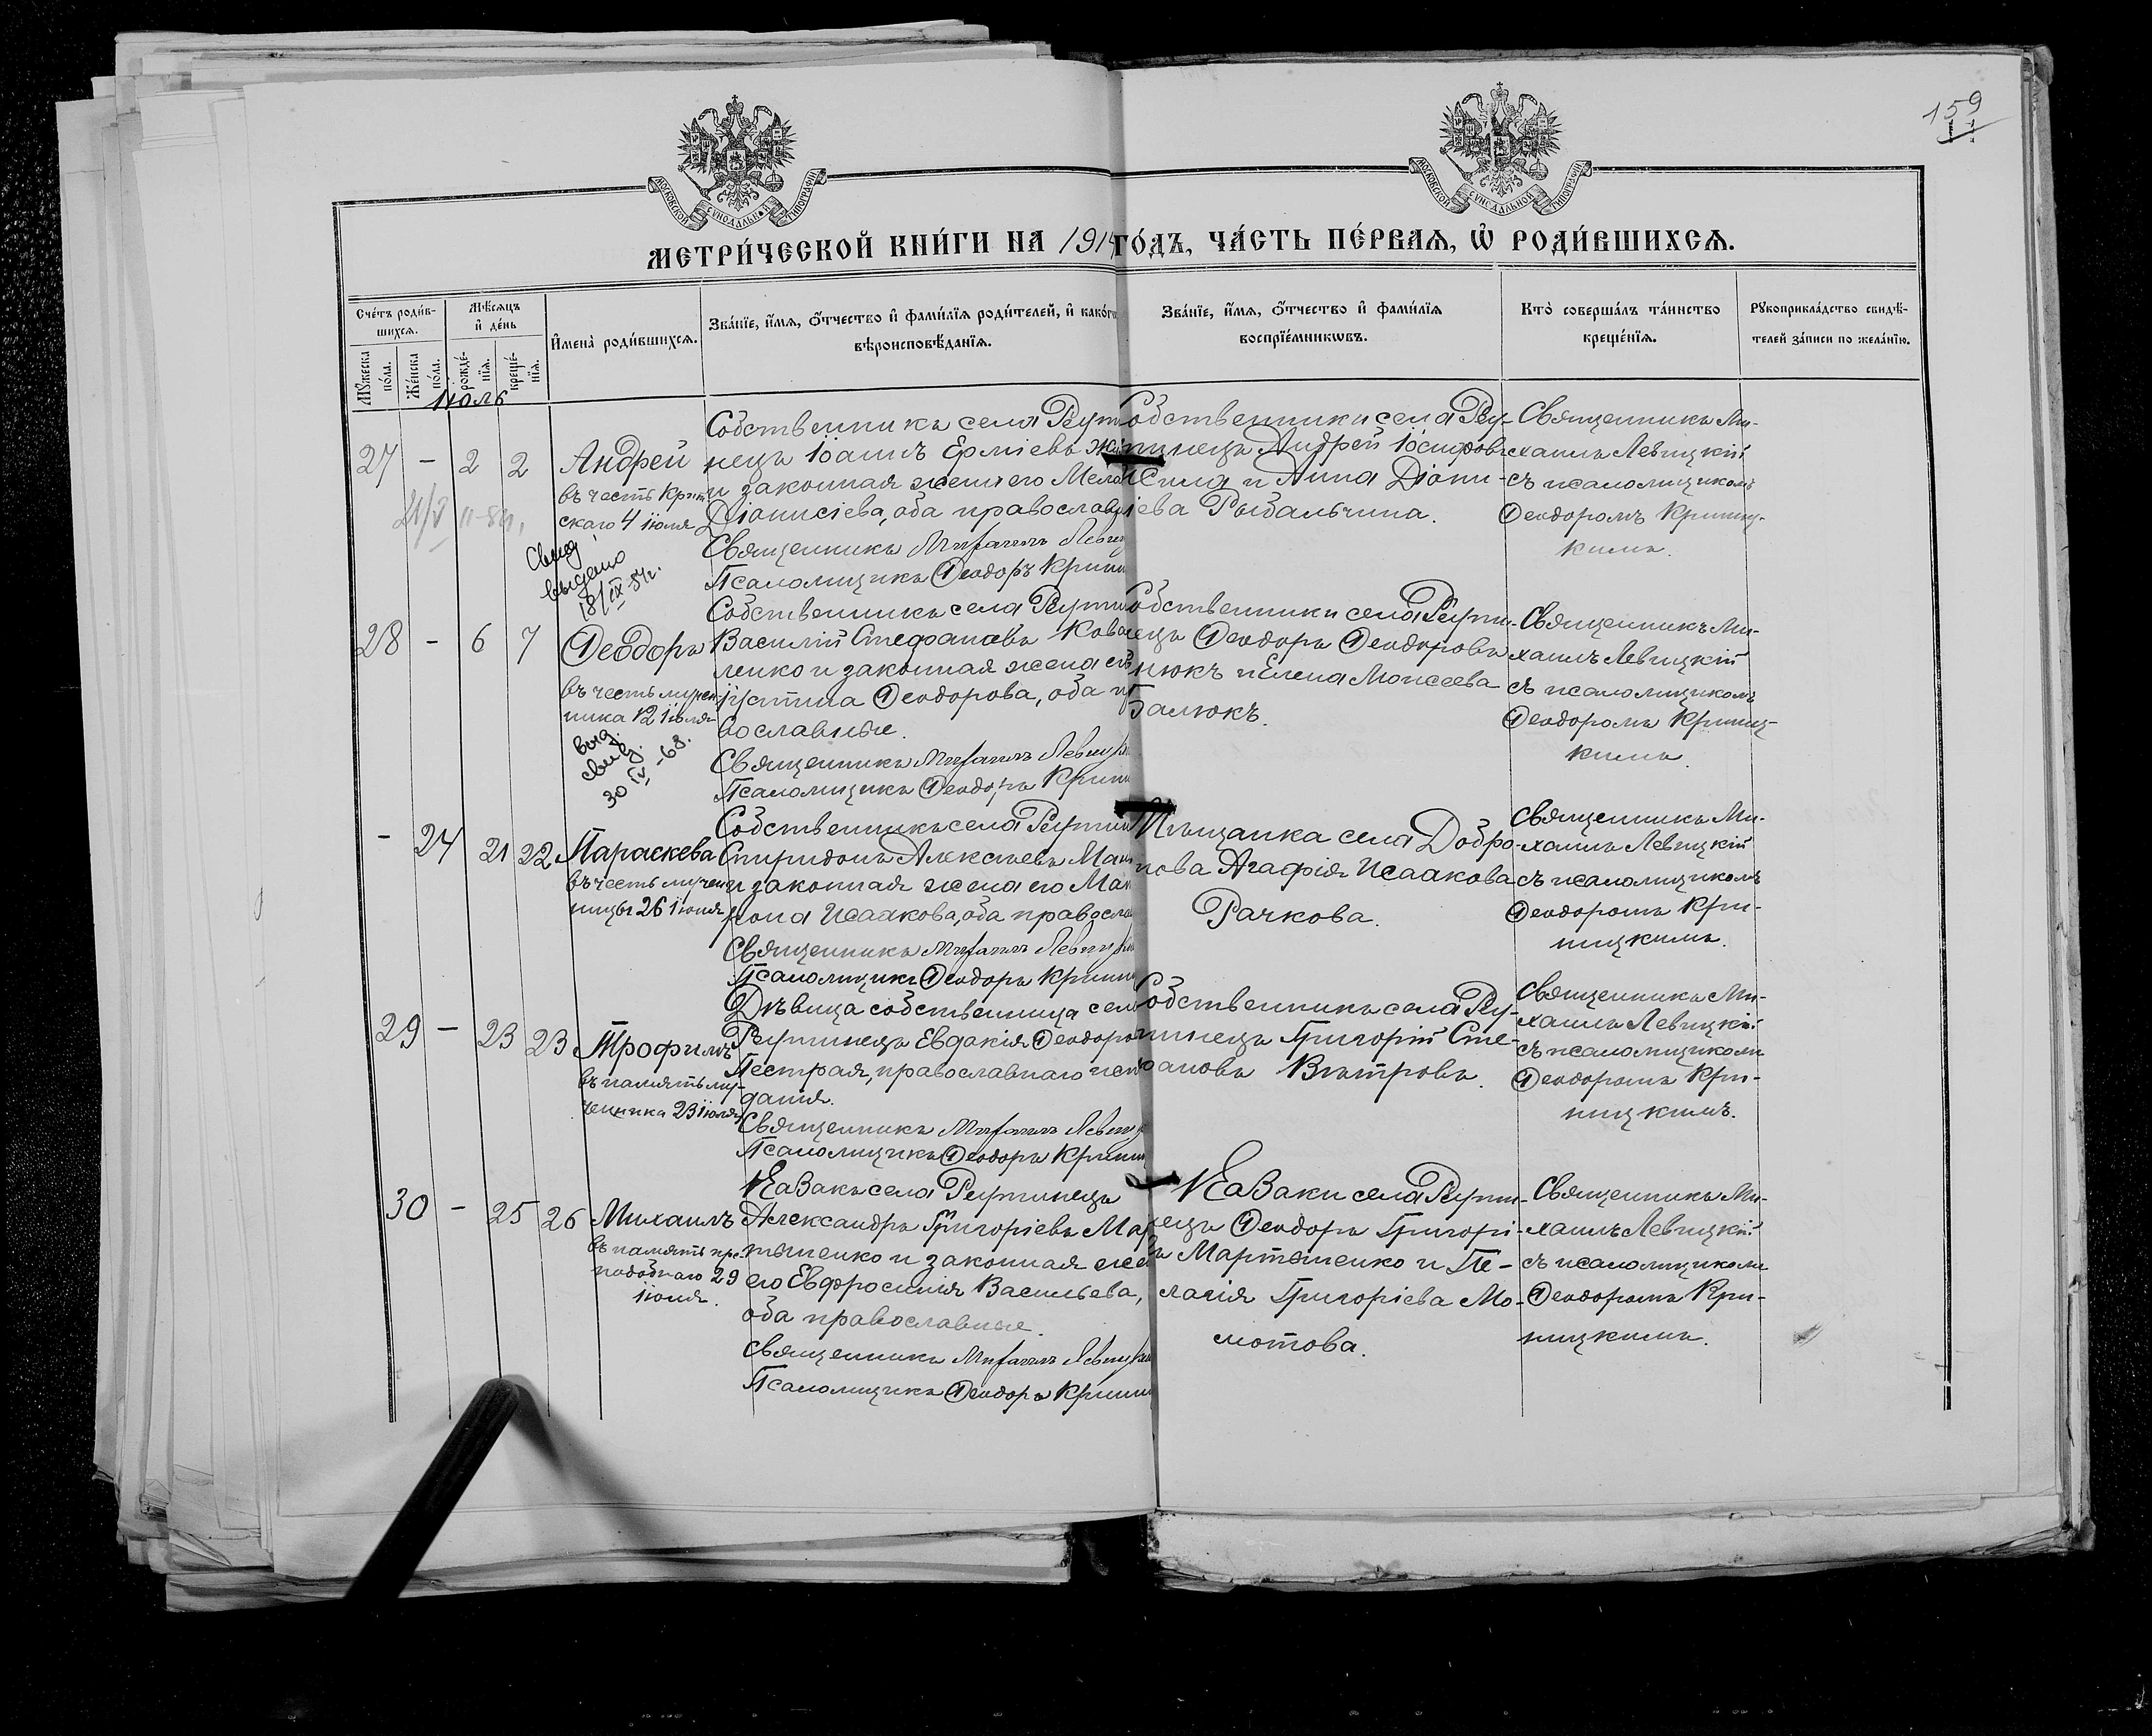 159
МОСКОВСКОЙ СѴНОДАЛЬНОЙ ТИПОГРАФІИ
МОСКОВСКОЙ СѴНОДАЛЬНОЙ ТИПОГРАФІИ
МЕТРИ́ЧЕСКОЙ КНИ́ГИ НА 1914 ГО́ДЪ, ЧА́СТЬ ПЕ́РВАѦ, Ѡ҆ РОДИ́ВШИХСѦ.
Сче́тъ роди́в-
шихсѧ.
Мꙋ́жеска по́ла.
Же́нска по́ла.
Мѣ́сѧцъ
и҆ де́нь
рожде́-
нїѧ.
креще́-
нїѧ.
И҆мена̀ роди́вшихсѧ.
Зва́нїе, и҆́мѧ, ѻ҆́тчество и҆ фами́лїѧ роди́телей, и҆ како́гѡ
вѣроисповѣ́данїѧ.
Зва́нїе, и҆́мѧ, ѻ҆́тчество и҆ фами́лїѧ
воспрїе́мникѡвъ.
Кто̀ соверша́лъ та́инство
креще́нїѧ.
Рꙋкоприкла́дство свидѣ́-
телей за́писи по жела́нїю.
Іюль
27 - 2 2
Андрей
въ честь Крит
скаго 4 іюля
Свид.
выдано
18/IX-54г.
Собственникъ села Реути
нецъ Іоаннъ Ерміевъ
и законная жена его
Діонисіева, оба православ
Священникъ Михаилъ Левиц
Псаломщикъ Ѳеодоръ Крини
Собственники села Реу-
тинецъ Андрей Іосифовъ
и Анна Діони-
сіева Рыбальчина.
Священникъ Ми-
хаилъ Левицкій
съ псаломщикомъ
Ѳеодоромъ Криниц-
кимъ.
28 - 6 7
Ѳеодоръ
въ честь мучен
ника 12 іюля
выд.
свид.
30 IV-68.
Собственникъ села Реути
Василій Стефановъ Кова
ленко и законная жена его
Іустина Ѳеодорова, оба пр
вославные.
Священникъ Михаилъ Левицкій
Псаломщикъ Ѳеодоръ Крини
Собственники села Реути-
нецъ Ѳеодоръ Ѳеодоровъ
нюкъ и Елена Моисеева
Балюкъ.
Священникъ Ми-
хаилъ Левицкій
съ псаломщикомъ
Ѳеодоромъ Криниц-
кимъ.
- 24 21 22
Параскева
въ честь мучен
ницы 26 іюля
Собственникъ села Реутин
Спиридонъ Алексѣевъ
и законная жена его Мат
рона Исаакова, оба правосла
Священникъ Михаилъ Левицкій
Псаломщикъ Ѳеодоръ Крини
Мѣщанка села Добро-
нова Агафія Исаакова
Рачкова.
Священникъ Ми-
хаилъ Левицкій
съ псаломщикомъ
Ѳеодоромъ Кри-
ницкимъ.
29 - 23 23
Трофимъ
въ память му-
ченика 23 іюля
Дѣвица собственница села
Реутинецъ Евдокія Ѳеодоро
Пестрая, православнаго испо
данія.
Священникъ Михаилъ Левиц
Псаломщикъ Ѳеодоръ Крини
Собственникъ села Реу-
тинецъ Григорій Сте-
фановъ Вѣтровъ.
Священникъ Ми-
хаилъ Левицкій
съ псаломщикомъ
Ѳеодоромъ Кри-
ницкимъ.
30 - 25 26
Михаилъ
въ память пре-
подобнаго 29
іюля.
Казакъ села Реутинецъ
Александръ Григоріевъ Мар
тыненко и законная жен
его Евфросинія Васильева,
оба православные.
Священникъ Михаилъ Левицкій
Псаломщикъ Ѳеодоръ Крини
Казаки села Реути-
нецъ Ѳеодоръ Григорі-
въ Мартыненко и Пе-
лагія Григоріева Мо-
мотова.
Священникъ Ми-
хаилъ Левицкій
съ псаломщикомъ
Ѳеодоромъ Кри-
ницкимъ.